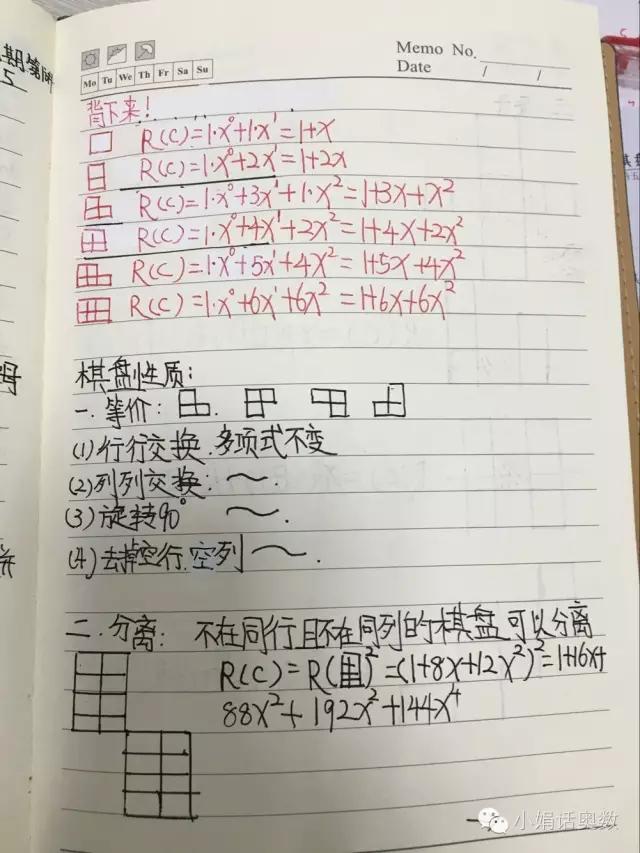 Memo No.
Date / /
Mo Tu We Th Fr Sa Su
背下来!
R(C)=1·x⁰+1·x¹=1+x
R(C)=1·x⁰+2x¹=1+2x
R(C)=1·x⁰+3x¹+1·x²=1+3x+x²
R(C)=1·x⁰+4x¹+2x²=1+4x+2x²
R(C)=1·x⁰+5x¹+4x²=1+5x+4x²
R(C)=1·x⁰+6x¹+6x²=1+6x+6x²
棋盘性质:
一.等价:
(1)行行交换.多项式不变
(2)列列交换.~.
(3)旋转90° ~.
(4)去掉空行.空列~.
二.分离: 不在同行且不在同列的棋盘可以分离
R(C)=R()²=(1+8x+12x²)²=1+16x+
88x²+192x²+144x⁴
小娟话奥数